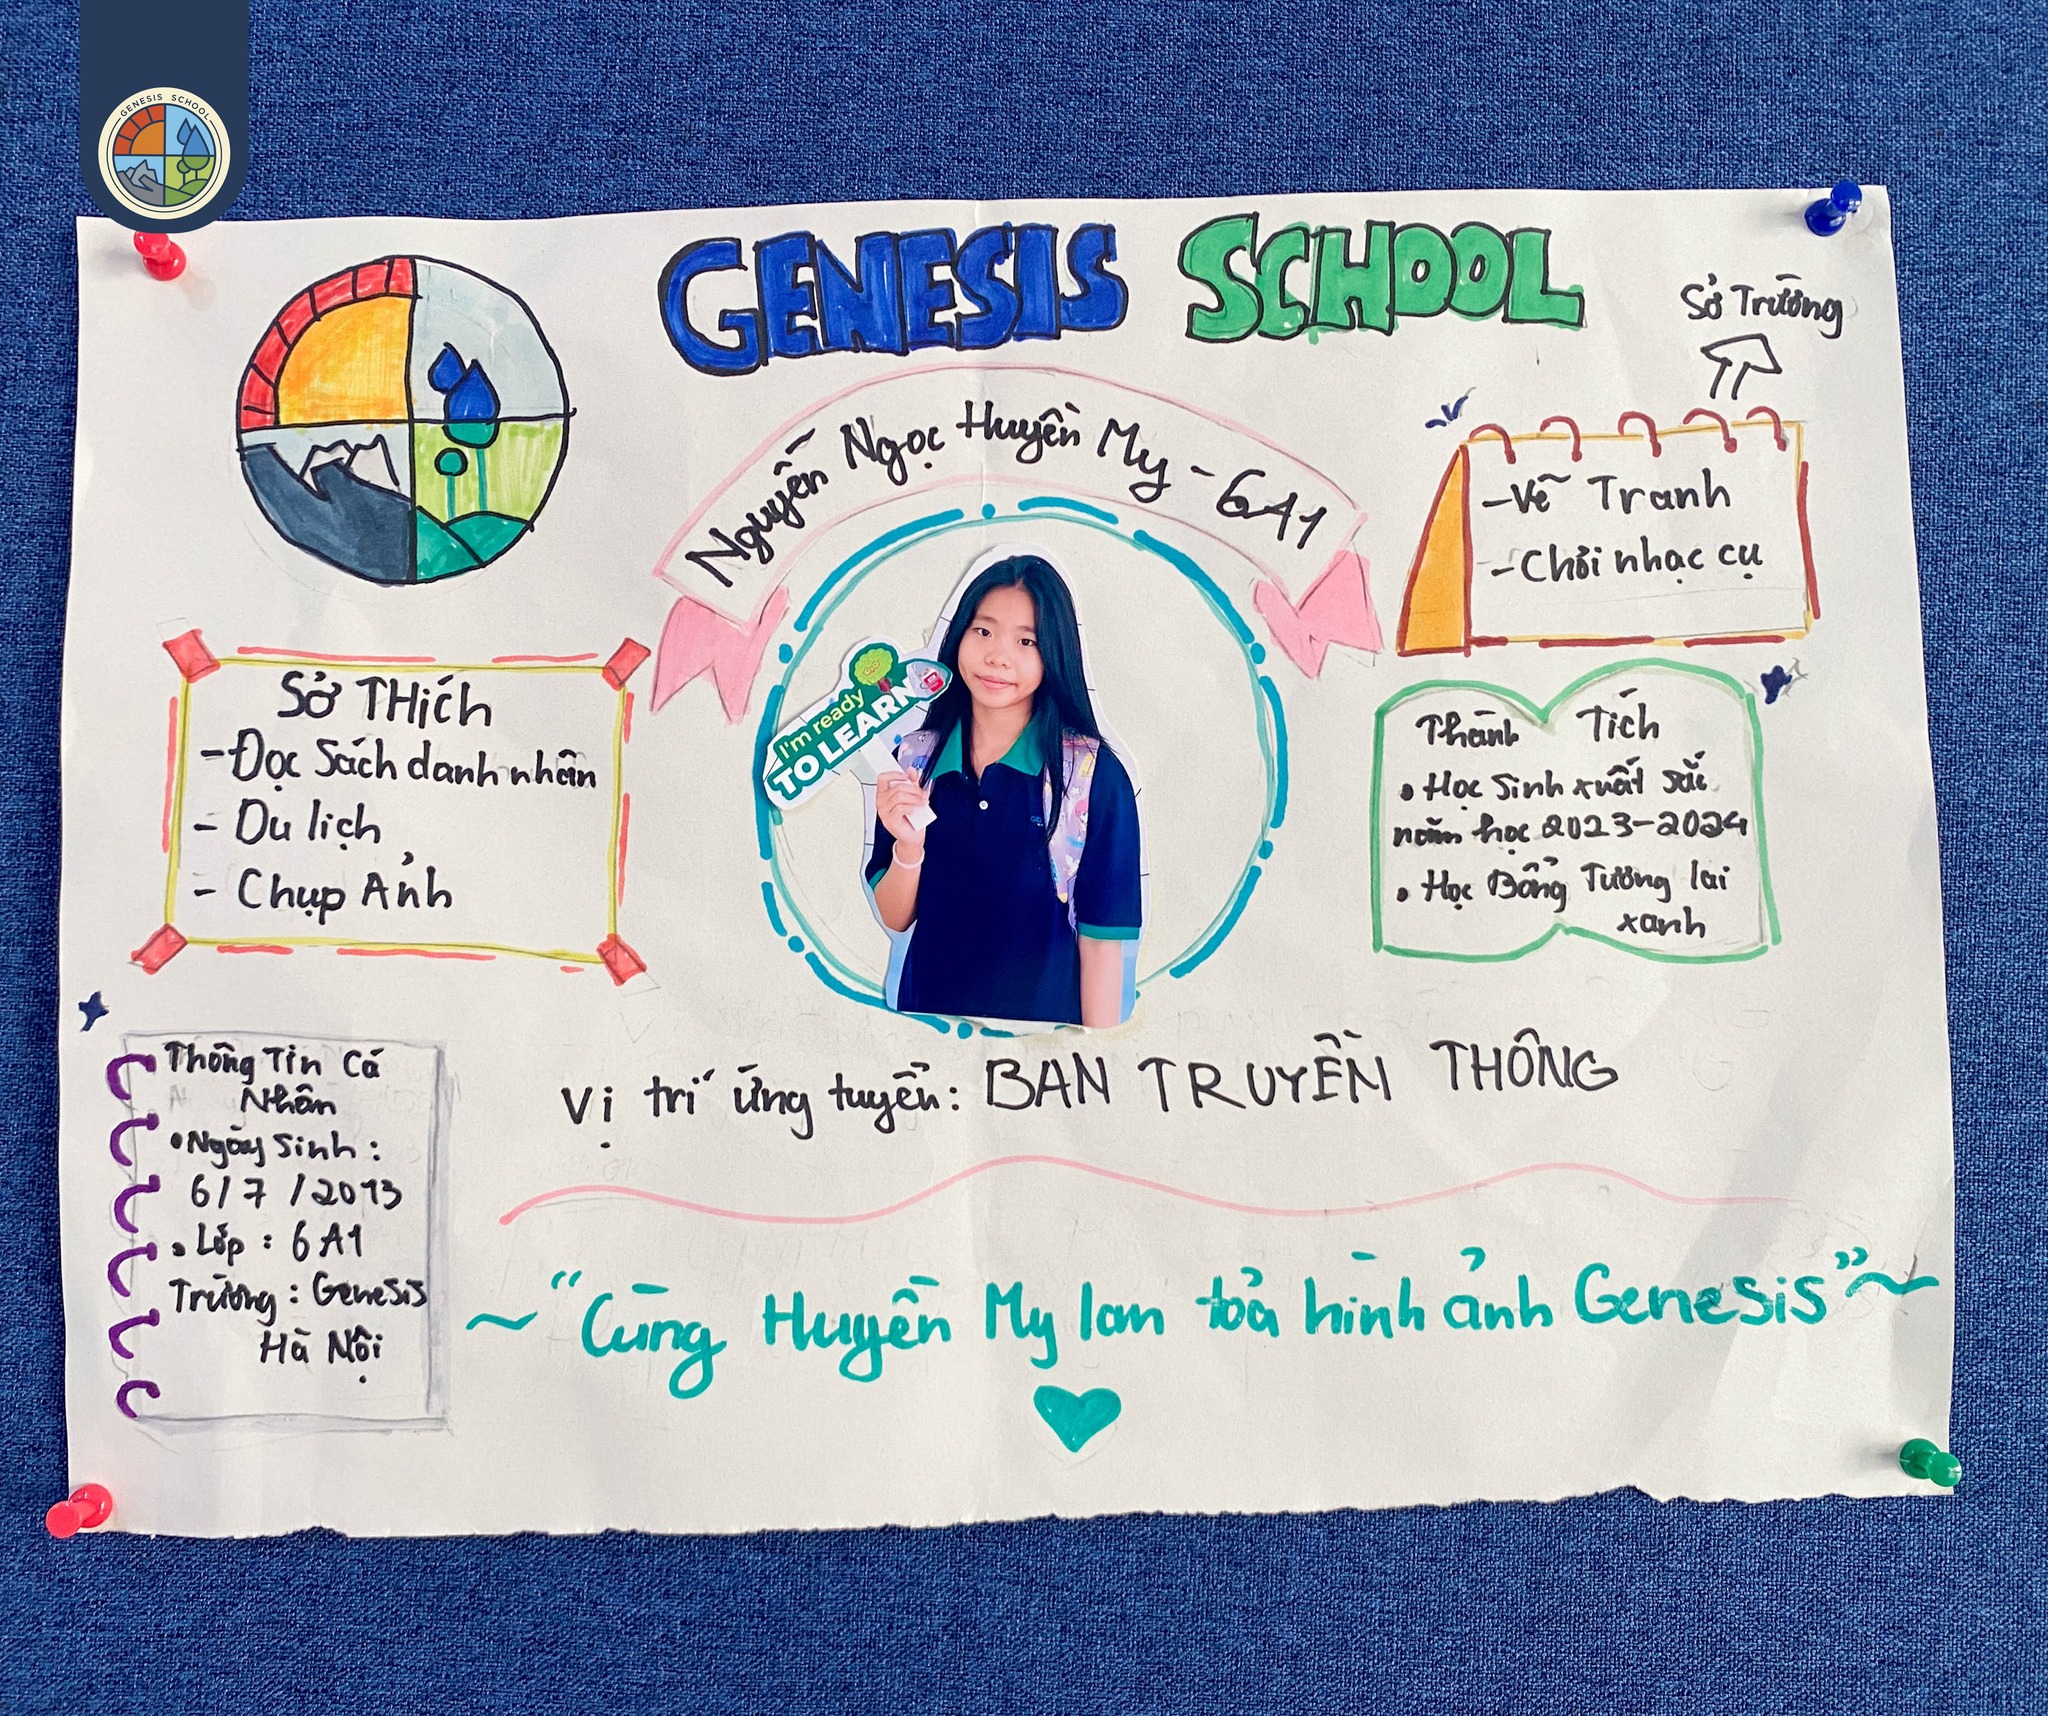 GENESIS SCHOOL
GENESIS SCHOOL
Nguyễn Ngọc Huyền My - 6A1
Sở Trường
- Vẽ Tranh
- Chơi nhạc cụ
I'm ready
TO LEARN
Sở THích
- Đọc Sách danh nhân
- Du lịch
- Chụp Ảnh
Thành Tích
• Học Sinh xuất sắc
năm học 2023-2024
• Học Bổng Tương lai
xanh
Thông Tin Cá
Nhân
• Ngày Sinh :
6/7/2013
• Lớp : 6A1
Trường : Genesis
Hà Nội
Vị trí ứng tuyển: BAN TRUYỀN THÔNG
~ "Cùng Huyền My lan toả hình ảnh Genesis" ~